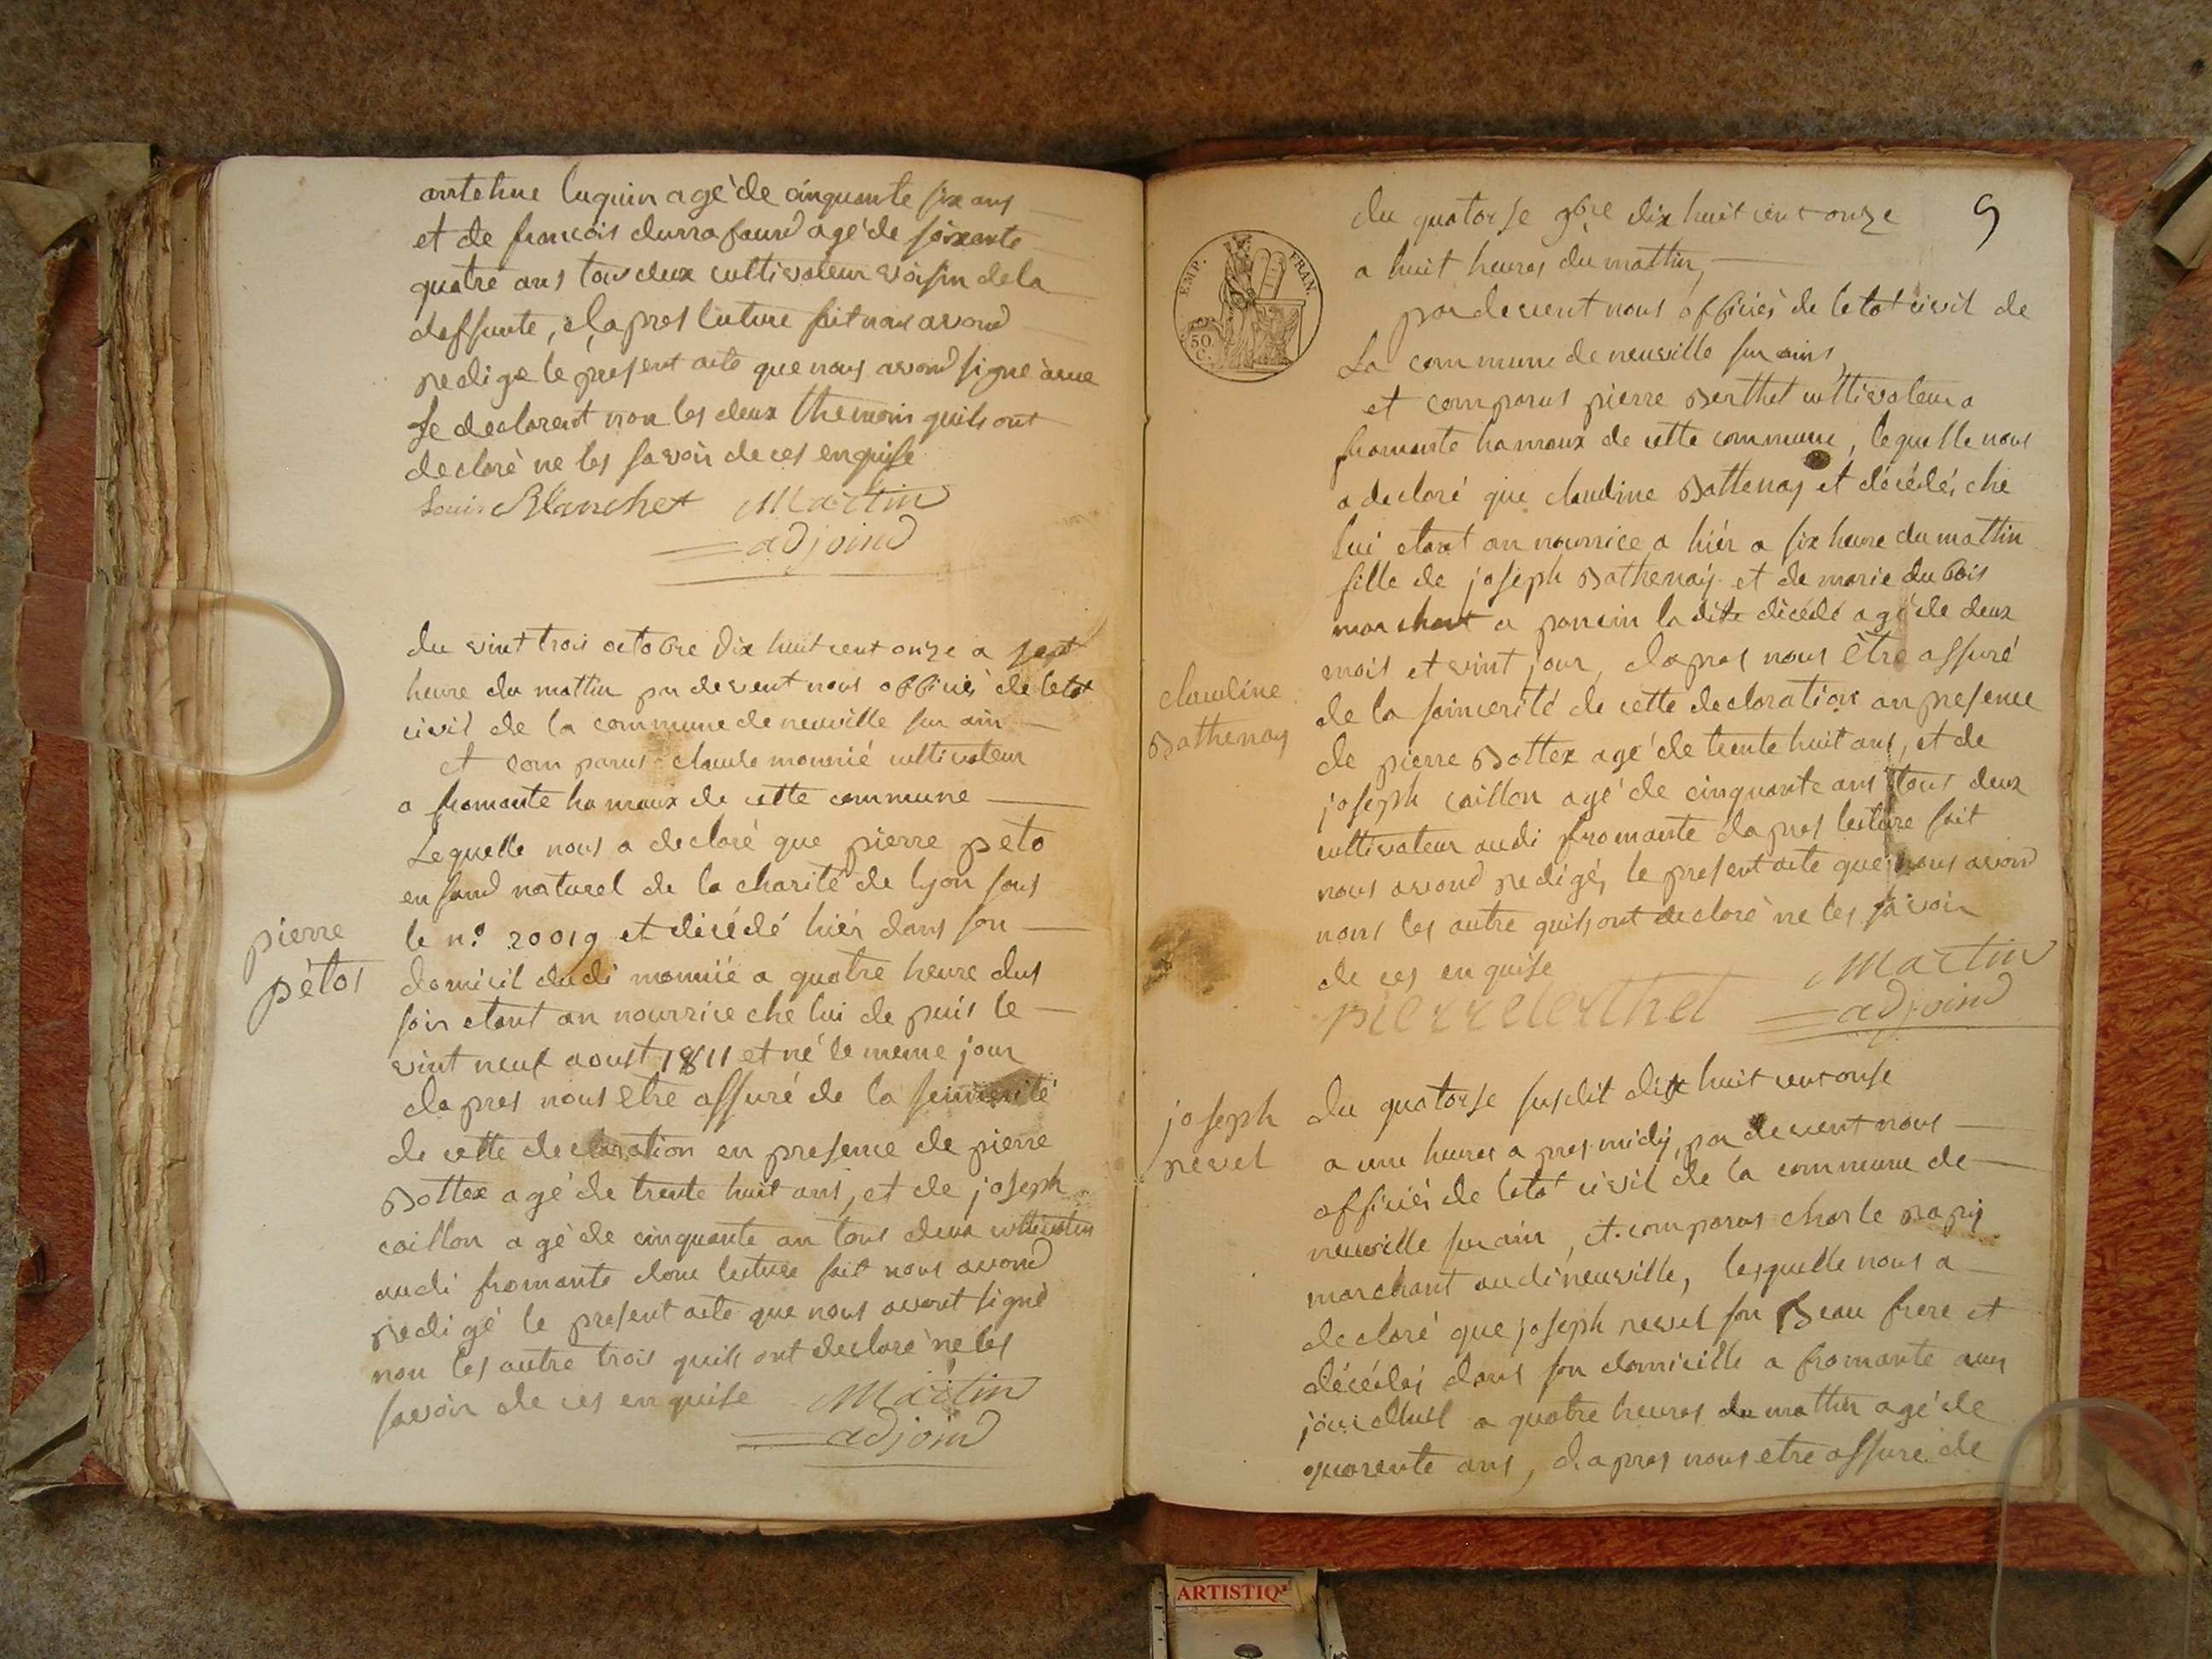 antelme luquin agé de cinquante six ans
et de francois durrafaurd agé de soixante
quatre ans tous deux cultivateur voisin de la
deffunte, dapres luture fait nous avond
redige le present acte que nous avond signé avec
le declarent non les deux themoin quils ont
declaré ne les savoir de ces enquise
Louis Blanchet Martin
adjoind
du vint trois octobre dix huit cent onze a sept
heure du mattin par devent nous officiés de letat
civil de la commune de neuville sur ain
et comparus claude monnié cultivateur
a fromante hamaux de cette commune
Lequelle nous a declaré que pierre peto
enfand naturel de la charité de lyon sous
le n.º 20019 et décédé hiér dans son
domicil dudi monnié a quatre heure dus
soir etant an nourrice che lui de puis le
vint neuf aoust 1811 et né le meme jour
dapres nous etre assuré de la seincerité
de cette declaration en presence de pierre
Bottex agé de trente huit ans, et de joseph
caillon agé de cinquante an tous deux cultivateur
audi fromante donc lecture fait nous avond
redigé le present acte que nous avont signé
non les autre trois quils ont declaré ne les
savoir de ces enquise Martin
adjoind
pierre
pétos
9
du quatorse 9bre dix huit cent onze
a huit heures du mattin,
par devent nous officiés de letat civil de
La commune de neuville sur ains
et comparus pierre Berthet cultivateur a
fromante hamaux de cette commune, lequelle nous
a declaré que claudine Battenay et décédés che
lui etant an nourrice a hiér a six heure du mattin
fille de joseph Bathenay et de marie du bois
marchant a poncin la dite décédé agé de deux
mois et vint jour, dapres nous être assuré
de la saincerité de cette declaration an presence
de pierre Bottex agé de trente huit ans, et de
joseph caillon agé de cinquante ans tous deux
cultivateur audi fromante dapres lecture fait
nous avond redigé, le present acte que nous avond
nons les autre quils ont declaré ne les savoir
de ces enquise Martin
pierre berthet adjoind
EMP. FRAN.
50
C.
claudine
Bathenay
joseph
revel
du quatorse susdit dix huit cent onse
a une heures apres midij, par devent nous
officiés de letat civil de la commune de
neuville sur ain, et comparus charle papij
marchant audi neuville, lesquelle nous a
declaré que joseph revel son Beau frere et
décédés dans son domicille a fromante aux
jourdhuit a quatre heures du mattin agé de
quarente ans, dapres nous etre assure de
ARTISTIQ